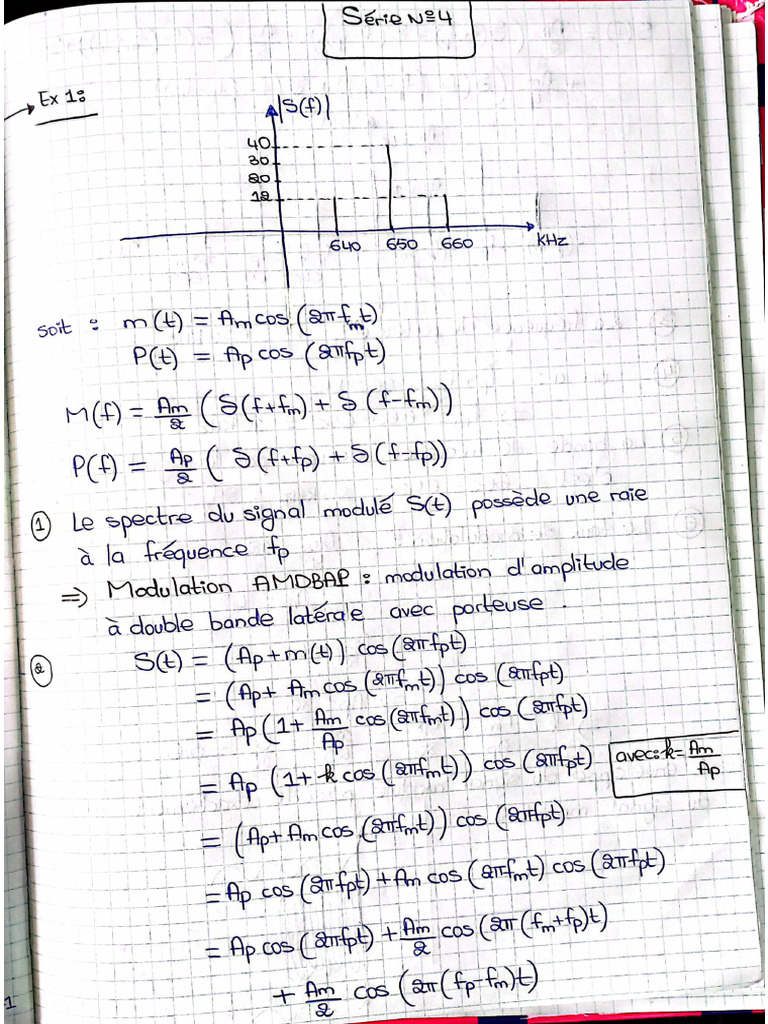 Série N°4
Ex 1:
|S(f)|
40
30
20
12
640 650 660 kHz
soit : m(t) = Am cos (2πfmt)
P(t) = Ap cos (2πfpt)
M(f) = Am/2 ( δ(f+fm) + δ (f-fm))
P(f) = Ap/2 ( δ(f+fp) + δ(f-fp))
① Le spectre du signal modulé S(t) possède une raie
à la fréquence fp
⇒ Modulation AMDBAP : modulation d'amplitude
à double bande latérale avec porteuse .
② S(t) = (Ap + m(t)) cos (2πfpt)
= (Ap + Am cos (2πfmt)) cos (2πfpt)
= Ap (1 + Am/Ap cos(2πfmt)) cos (2πfpt)
= Ap (1 + k cos (2πfmt)) cos (2πfpt) avec: k = Am/Ap
= (Ap + Am cos (2πfmt)) cos (2πfpt)
= Ap cos (2πfpt) + Am cos (2πfmt) cos (2πfpt)
= Ap cos (2πfpt) + Am/2 cos (2π(fm+fp)t)
+ Am/2 cos (2π(fp-fm)t)
1